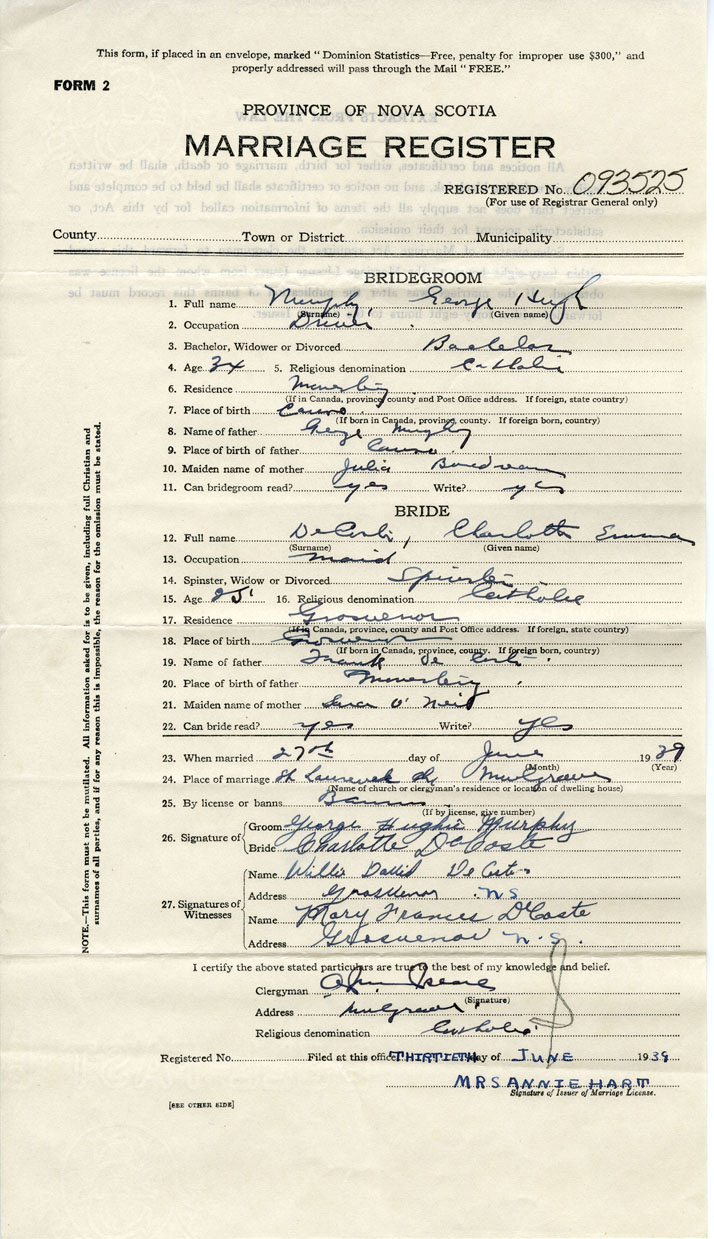 This form, if placed in an envelope, marked "Dominion Statistics—Free, penalty for improper use $300," and
properly addressed will pass through the Mail "FREE."
FORM 2
PROVINCE OF NOVA SCOTIA
MARRIAGE REGISTER
REGISTERED No. 093525
(For use of Registrar General only)
County Town or District Municipality
BRIDEGROOM
1. Full name Murphy, George Hugh
(Surname) (Given name)
2. Occupation Driver
3. Bachelor, Widower or Divorced Bachelor
4. Age 34 5. Religious denomination Catholic
6. Residence
(If in Canada, province, county and Post Office address. If foreign, state country)
7. Place of birth Canso
(If born in Canada, province, county. If foreign born, country)
8. Name of father George Murphy
9. Place of birth of father Canso
10. Maiden name of mother Julia Boudreau
11. Can bridegroom read? yes Write? yes
BRIDE
12. Full name DeCoste, Charlotte Emma
(Surname) (Given name)
13. Occupation maid
14. Spinster, Widow or Divorced Spinster
15. Age 25 16. Religious denomination Catholic
17. Residence Grosvenor
(If in Canada, province, county and Post Office address. If foreign, state country)
18. Place of birth Grosvenor
(If born in Canada, province, county. If foreign born, country)
19. Name of father Frank De Coste
20. Place of birth of father
21. Maiden name of mother Sara O'Neil
22. Can bride read? yes Write? yes
23. When married 27th day of June 1939
(Month) (Year)
24. Place of marriage Mulgrave
(Name of church or clergyman's residence or location of dwelling house)
25. By license or banns Banns
(If by license, give number)
26. Signature of Groom George Hughie Murphy
Bride Charlotte DeCoste
27. Signatures of Witnesses
Name Willie David DeCoste
Address Grosvenor N S
Name Mary Frances D'Coste
Address Grosvenor N.S.
I certify the above stated particulars are true to the best of my knowledge and belief.
Clergyman
(Signature)
Address Mulgrave
Religious denomination Catholic
Registered No. Filed at this office THIRTIETH day of JUNE 1939
MRS ANNIE HART
Signature of Issuer of Marriage License.
[SEE OTHER SIDE]
NOTE.—This form must not be mutilated. All information asked for is to be given, including full Christian and
surnames of all parties, and if for any reason this is impossible, the reason for the omission must be stated.